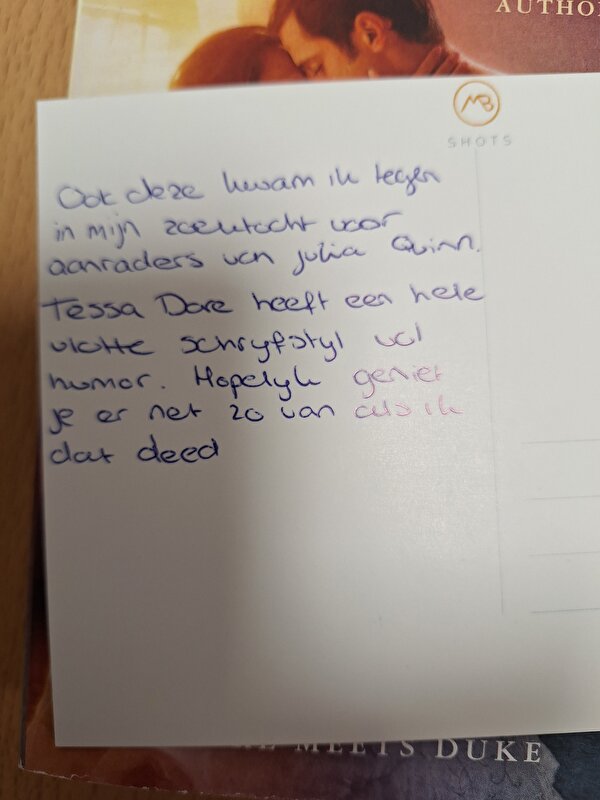 AUTHO
MB
SHOTS
Ook deze kwam ik tegen
in mijn zoektocht voor
aanraders van Julia Quinn.
Tessa Dare heeft een hele
vlotte schryfstyl vol
humor. Hopelyk geniet
je er net zo van als ik
dat deed
MEETS DUKE